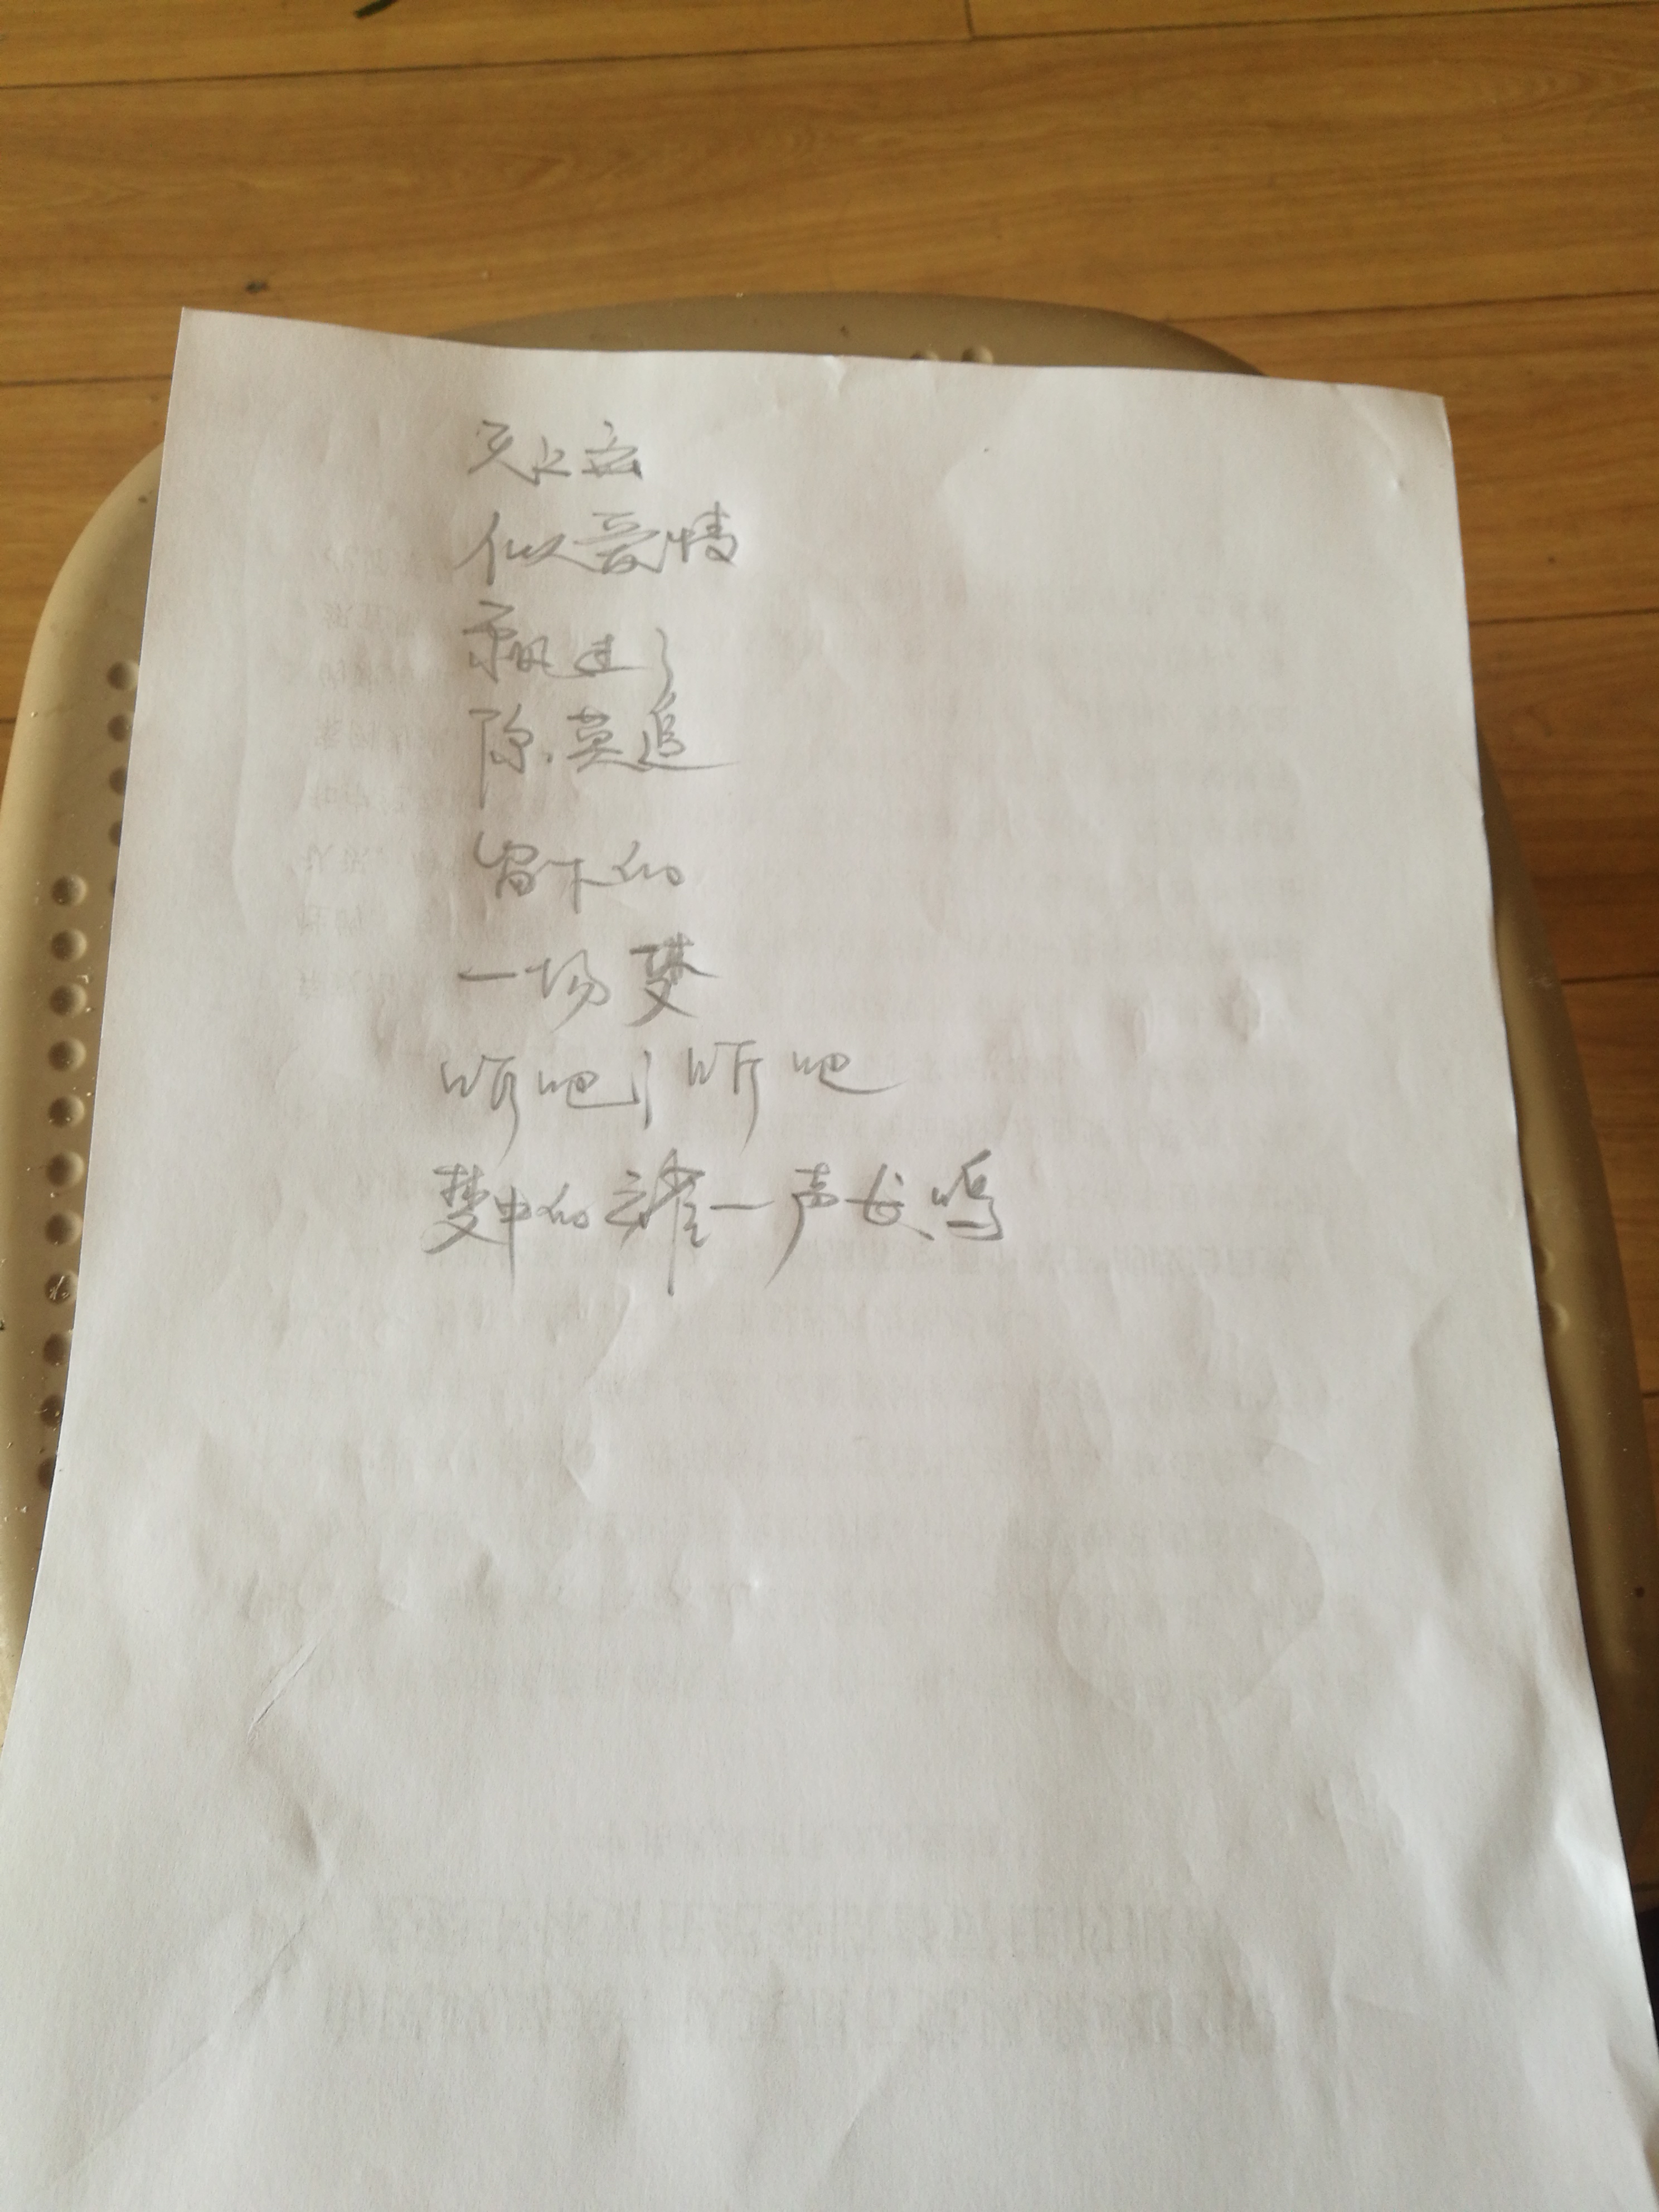 天上云
似爱情
飘走了
你莫追
留下的
一场梦
听吧，听吧
梦中的云雀一声长鸣